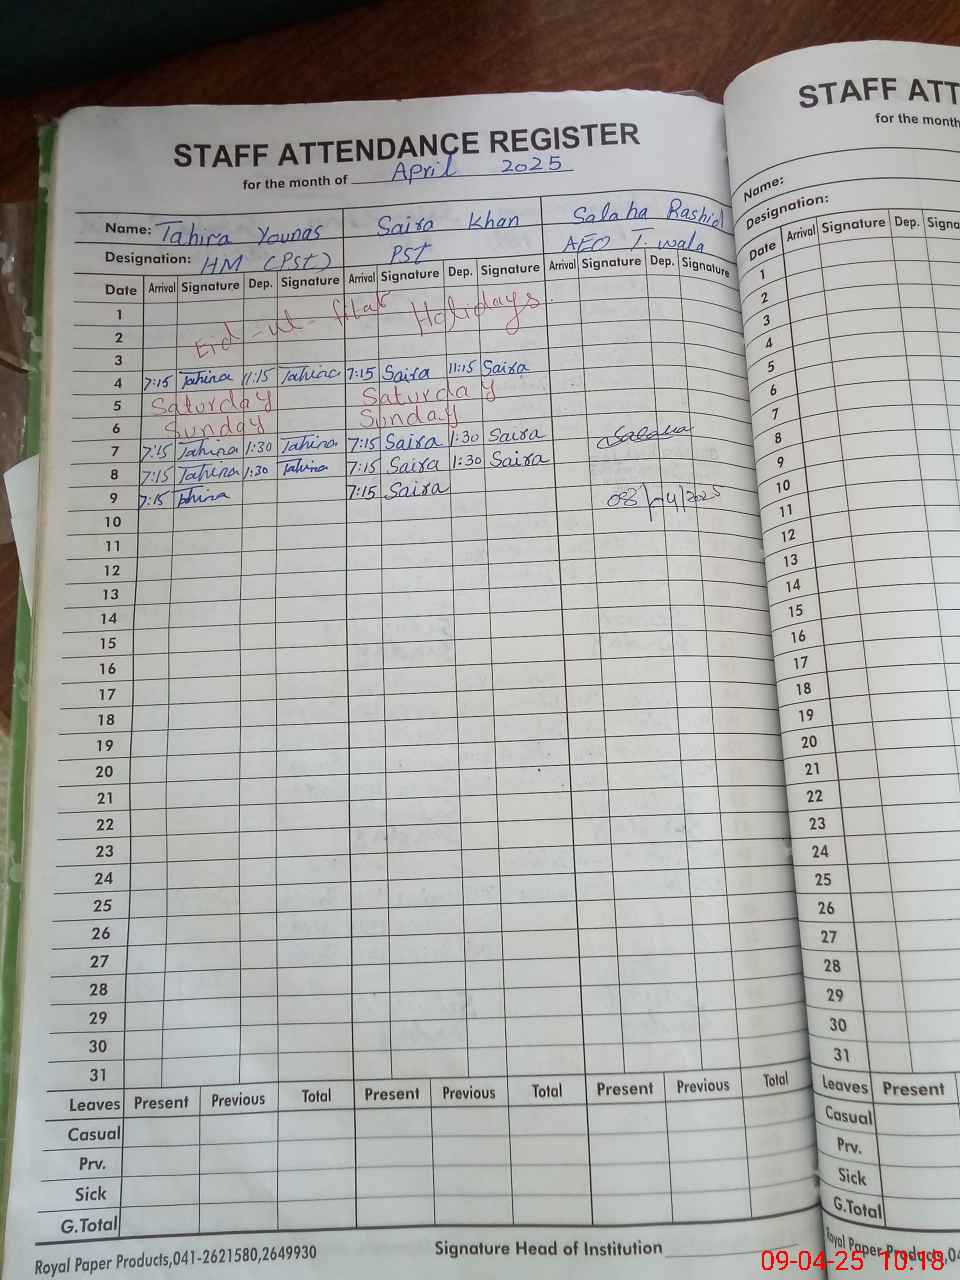 STAFF ATTENDANCE REGISTER
for the month of April 2025
Name: Tahira Younas Saira Khan Salaha Rashid
Designation: HM (PST) PST AEO T.wala
Date Arrival Signature Dep. Signature Arrival Signature Dep. Signature Arrival Signature Dep. Signature
1 Eid-ut-fitar Holidays
2
3
4 7:15 Tahira 11:15 Tahira 7:15 Saira 11:15 Saira
5 Saturday Saturday
6 Sunday Sunday
7 7:15 Tahira 1:30 Tahira 7:15 Saira 1:30 Saira Salaha
8 7:15 Tahira 1:30 Tahira 7:15 Saira 1:30 Saira
9 7:15 Tahira 7:15 Saira 08/04/2025
10
11
12
13
14
15
16
17
18
19
20
21
22
23
24
25
26
27
28
29
30
31
Leaves Present Previous Total Present Previous Total Present Previous Total
Casual
Prv.
Sick
G.Total
Royal Paper Products,041-2621580,2649930 Signature Head of Institution
STAFF ATT
for the month
Name:
Designation:
Date Arrival Signature Dep. Signa
1
2
3
4
5
6
7
8
9
10
11
12
13
14
15
16
17
18
19
20
21
22
23
24
25
26
27
28
29
30
31
Leaves Present
Casual
Prv.
Sick
G.Total
Royal Paper Products,04
09-04-25 10:18